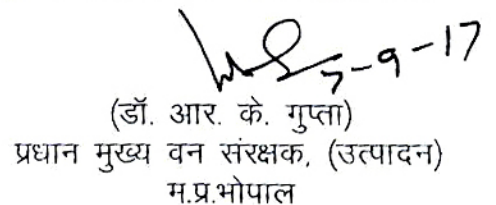 7-9-17
(डॉ. आर. के. गुप्ता)
प्रधान मुख्य वन संरक्षक, (उत्पादन)
म.प्र.भोपाल